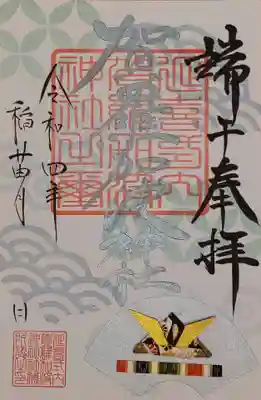 端午奉拝
賀羅加波神社
延喜式内
賀羅加波
神社之璽
令和四年
稲苗月 日